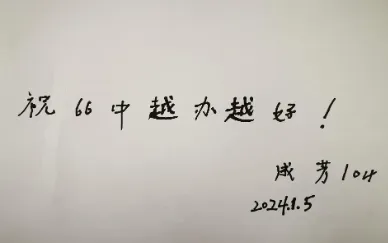 祝66中越办越好！
成芳104
2024.1.5